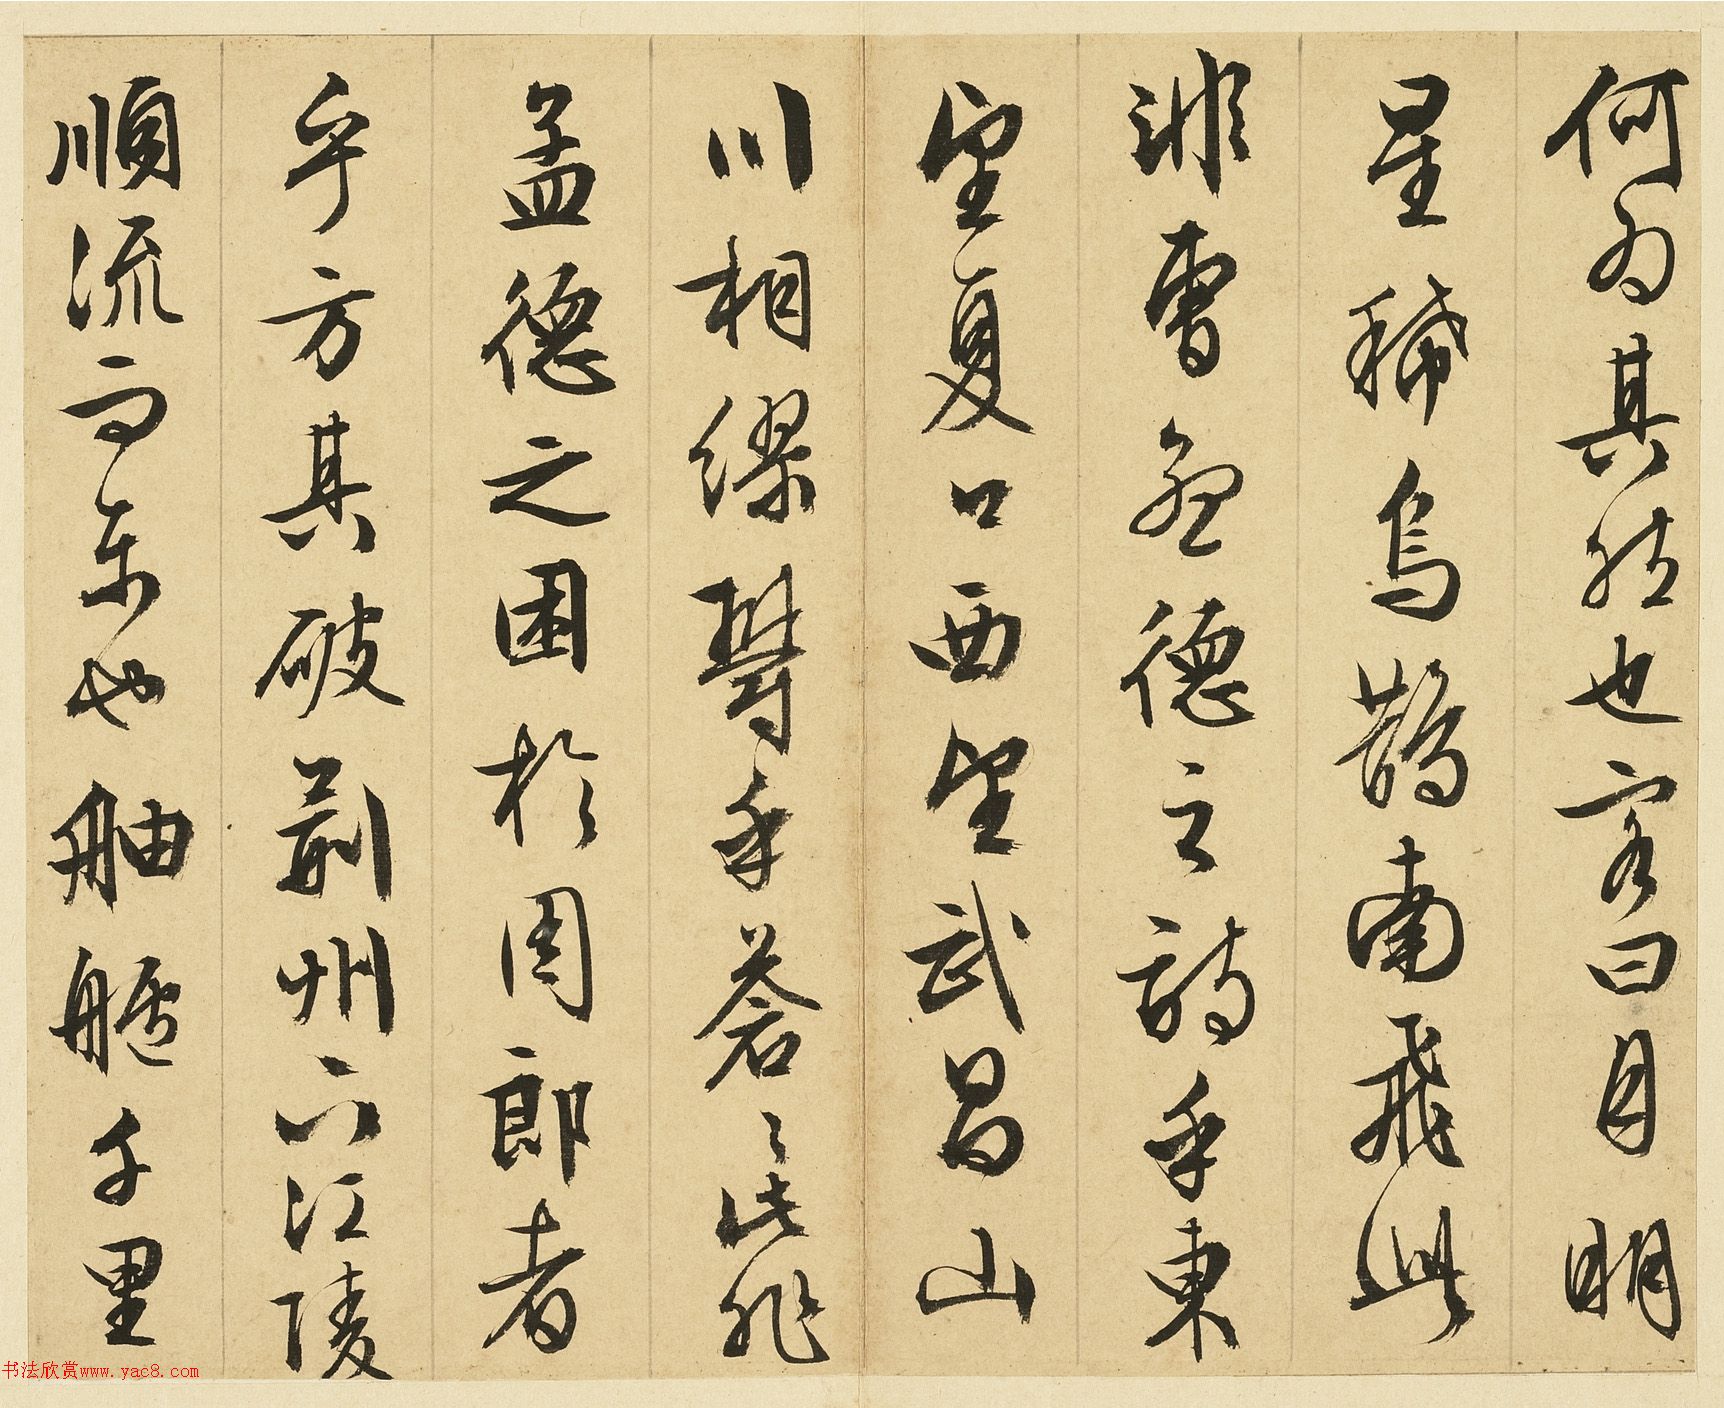 何為其然也客曰月明
星稀烏鵲南飛此
非曹孟德之詩乎東
望夏口西望武昌山
川相繆鬱乎蒼〻此非
孟德之困於周郎者
乎方其破荊州下江陵
順流而東也舳艫千里
书法欣赏www.yac8.com